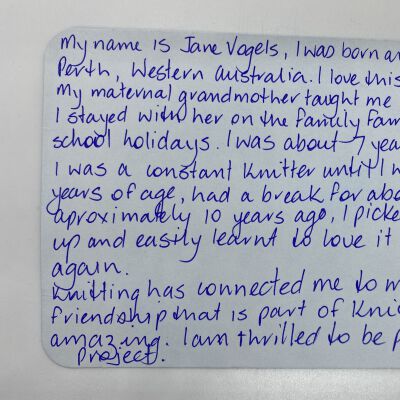 My name is Jane Vogels, I was born a
Perth, Western Australia. I love this
My maternal grandmother taught me
I stayed with her on the family Far
school holidays. I was about 7 yea
I was a constant knitter until I w
years of age, had a break for abo
aproximately 10 years ago, I picke
up and easily learnt to love it
again.
Knitting has connected me to m
friendship that is part of Kni
amazing. I am thrilled to be p
Project.